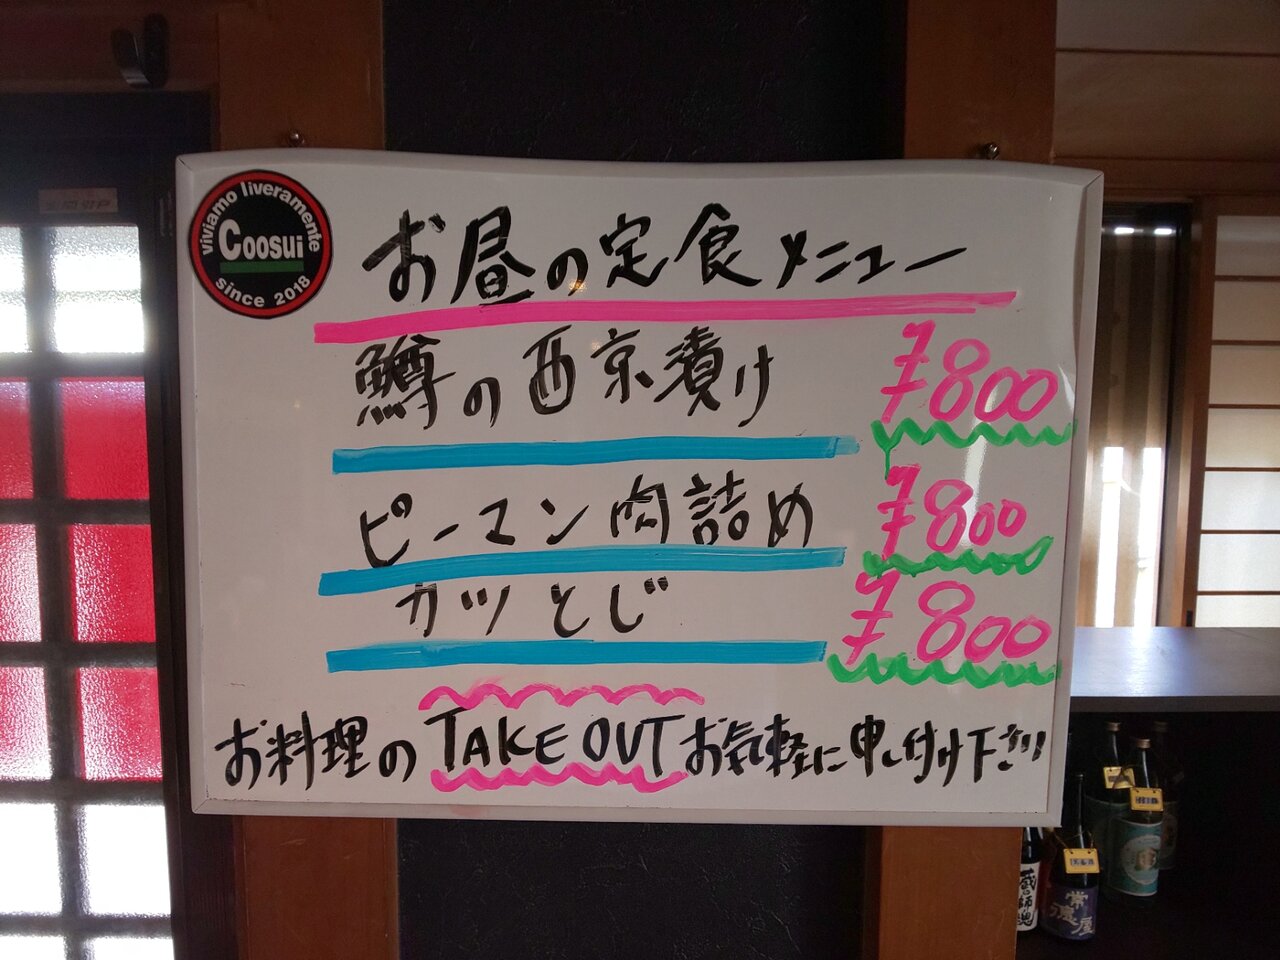 viviamo liveramente
Coosui
since 2018
お昼の定食メニュー
鱒の西京漬け ¥800
ピーマン肉詰め ¥800
カツとじ ¥800
お料理のTAKE OUTお気軽に申し付け下さい
蔵の師魂